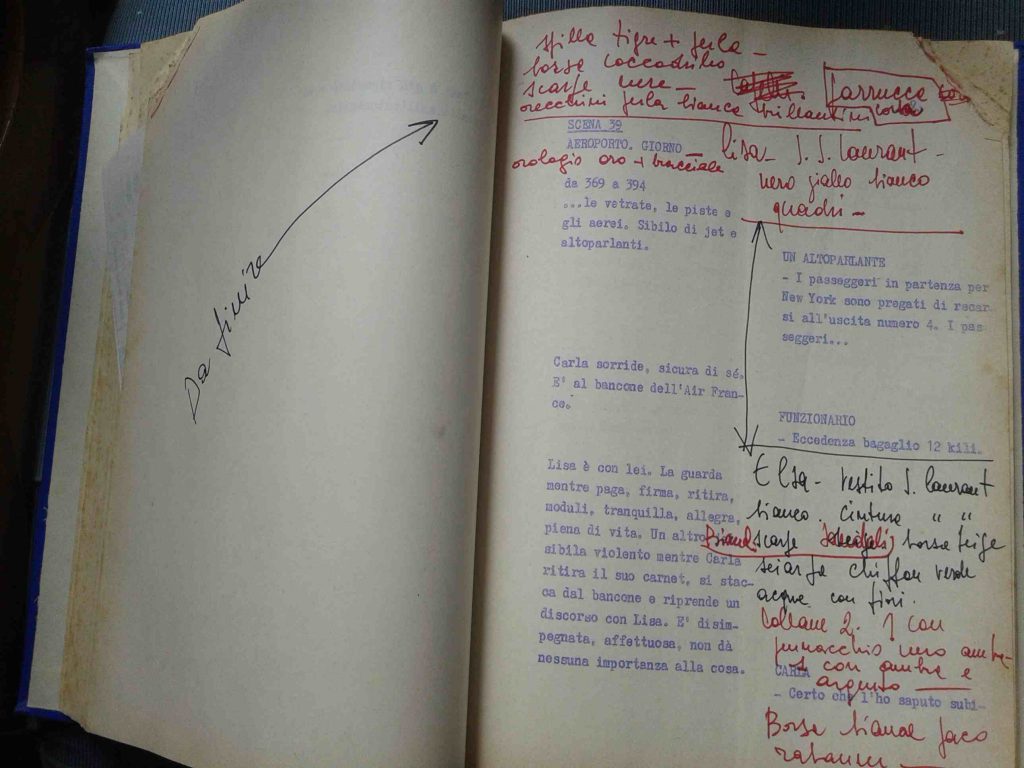 Da finire
spilla tigre + perla -
borse coccodrillo
scarfe nere -
orecchini perla bianca brillantini
Parrucca
corta
SCENA 39
AEROPORTO. GIORNO
orologio oro + bracciale
lisa - S. S. laurant -
nero giallo bianco
quadri -
da 369 a 394
...le vetrate, le piste e
gli aerei. Sibilo di jet e
altoparlanti.
UN ALTOPARLANTE
- I passeggeri in partenza per
New York sono pregati di recar
si all'uscita numero 4. I pas
seggeri...
Carla sorride, sicura di sé.
E' al bancone dell'Air Fran-
ce.
FUNZIONARIO
- Eccedenza bagaglio 12 kili.
Lisa è con lei. La guarda
mentre paga, firma, ritira,
moduli, tranquilla, allegra,
piena di vita. Un altro
sibila violento mentre Carla
ritira il suo carnet, si stac-
ca dal bancone e riprende un
discorso con Lisa. E' disim-
pegnata, affettuosa, non dà
nessuna importanza alla cosa.
Elsa - vestito S. laurant
bianco. cinture " "
scarfe borsa beige
sciarfa chiffon verde
acqua con fiori.
Collane 2. 1 con
pennacchio nero ambra
1 con ambra e
argento
CARLA
- Certo che l'ho saputo subi-
Borse paco
rabanne